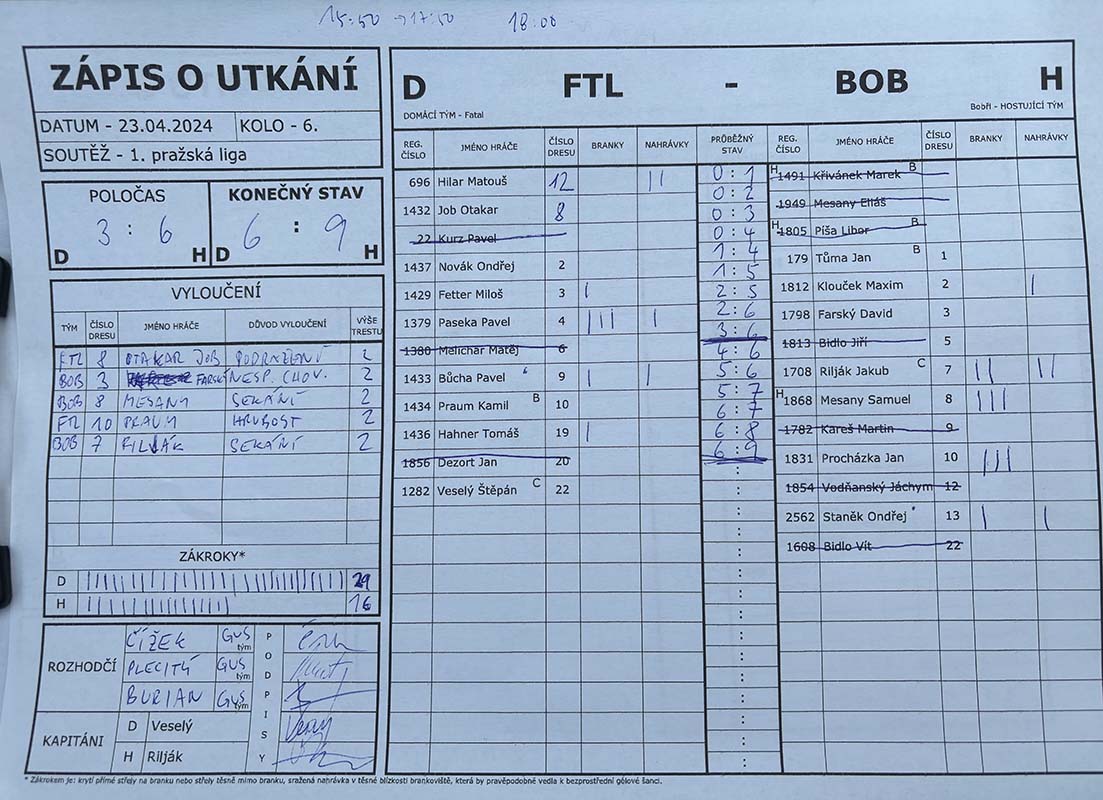 15:50 → 17:50 18:00
ZÁPIS O UTKÁNÍ
DATUM - 23.04.2024 KOLO - 6.
SOUTĚŽ - 1. pražská liga
POLOČAS KONEČNÝ STAV
3 : 6 6 : 9
D H D H
VYLOUČENÍ
TÝM ČÍSLO DRESU JMÉNO HRÁČE DŮVOD VYLOUČENÍ VÝŠE TRESTU
FTL 8 OTAKAR JOB PODRAŽENÍ 2
BOB 3 FARSKÝ NESP. CHOV. 2
BOB 8 MESANY SEKÁNÍ 2
FTL 10 PRAUM HRUBOST 2
BOB 7 RILJÁK SEKÁNÍ 2
ZÁKROKY*
D 29
H 16
ROZHODČÍ
ČÍŽEK GUS tým
PLECITÝ GUS tým
BURIAN GUS tým
PODPISY
KAPITÁNI
D Veselý
H Riljak
D FTL - BOB H
DOMÁCÍ TÝM - Fatal Bobři - HOSTUJÍCÍ TÝM
REG. ČÍSLO JMÉNO HRÁČE ČÍSLO DRESU BRANKY NAHRÁVKY PRŮBĚŽNÝ STAV REG. ČÍSLO JMÉNO HRÁČE ČÍSLO DRESU BRANKY NAHRÁVKY
696 Hilar Matouš 12 ||
1432 Job Otakar 8
22 Kurz Pavel
1437 Novák Ondřej 2
1429 Fetter Miloš 3 |
1379 Paseka Pavel 4 ||| |
1380 Melichar Matěj 6
1433 Bůcha Pavel 9 | |
1434 Praum Kamil B 10
1436 Hahner Tomáš 19 |
1856 Dezort Jan 20
1282 Veselý Štěpán C 22
0 : 1
0 : 2
0 : 3
0 : 4
1 : 4
1 : 5
2 : 5
2 : 6
3 : 6
4 : 6
5 : 6
5 : 7
6 : 7
6 : 8
6 : 9
H 1491 Křivánek Marek B
1949 Mesany Eliáš
H 1805 Píša Libor B
179 Tůma Jan B 1
1812 Klouček Maxim 2 |
1798 Farský David 3
1813 Bidlo Jiří 5
1708 Riljak Jakub C 7 || ||
H 1868 Mesany Samuel 8 |||
1782 Kareš Martin 9
1831 Procházka Jan 10 |||
1854 Vodňanský Jáchym 12
2562 Staněk Ondřej 13 | |
1608 Bidlo Vít 22
* Zákrokem je: krytí přímé střely na branku nebo střely těsně mimo branku, sražená nahrávka v těsné blízkosti brankoviště, která by pravěpodobně vedla k bezprostřední gólové šanci.